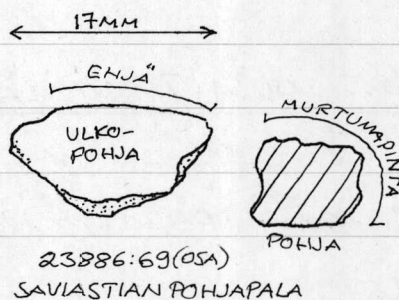 17MM
EHJÄ
ULKO-
POHJA
MURTUMAPINTA
POHJA
23886:69(OSA)
SAVIASTIAN POHJAPALA